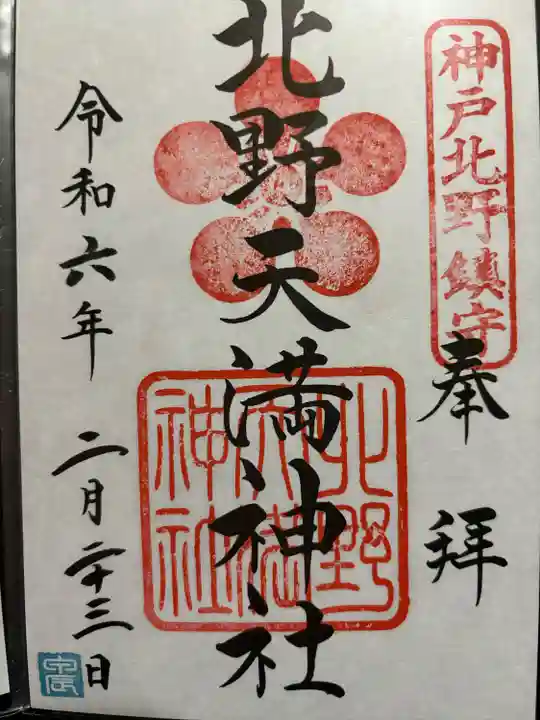 神戸北野鎮守
奉拝
北野天満神社
北野
天満
神社
令和六年 二月二十三日